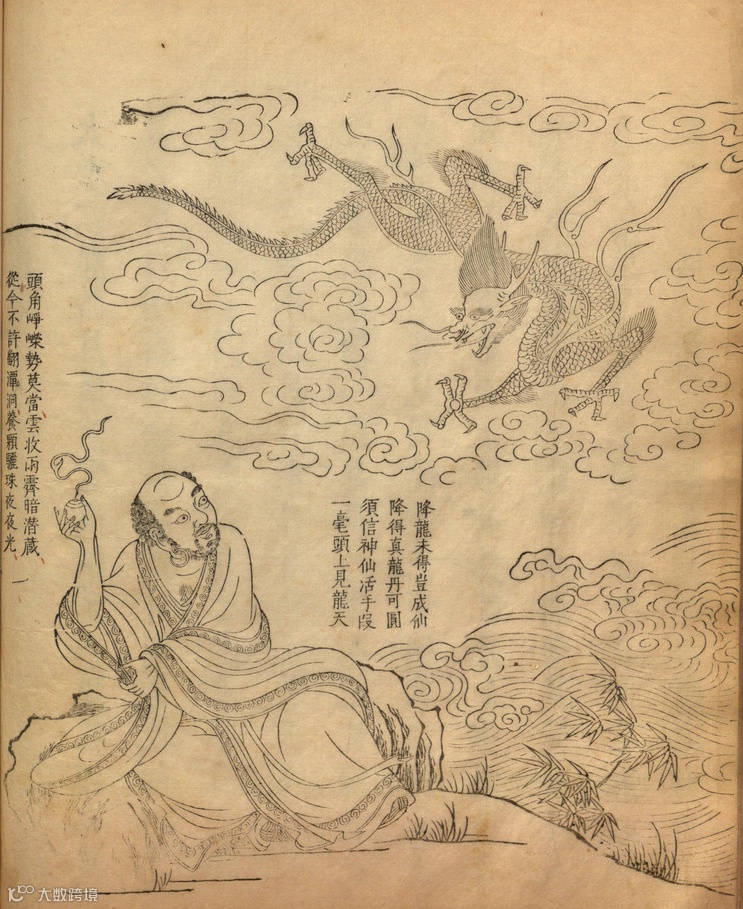 降龍未得豈成仙
降得真龍丹可圓
須信神仙活手段
一毫頭上見龍天
頭角崢嶸勢莫當雲收雨霽暗潜藏
從今不許翻潭洞養顆驪珠夜夜光
大数跨境